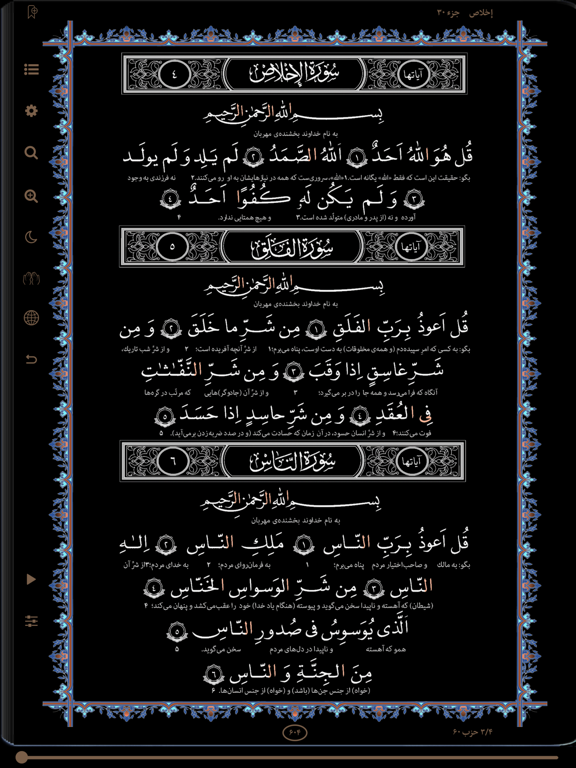 إخلاص جزء ۳۰
آیاتها سُورَةُ الإِخلاصِ ٤
بِسمِ اللهِ الرَّحمٰنِ الرَّحیمِ
به نام خداوند بخشنده‌ی مهربان
قُل هُوَ اللهُ اَحَدٌ ۱ اَللهُ الصَّمَدُ ۲ لَم یَلِد وَ لَم یولَد
بگو: حقیقت این است که فقط «الله» یگانه است.۱ «الله»، سروری‌ست که همه در نیازهایشان به او رو می‌کنند.۲ نه فرزندی به وجود
۳ وَ لَم یَکُن لَهٗ کُفُوًا اَحَدٌ ٤
آورده و نه (از پدر و مادری) متولّد شده است.۳ و هیچ همتایی ندارد. ۴
آیاتها سُورَةُ الفَلَقِ ٥
بِسمِ اللهِ الرَّحمٰنِ الرَّحیمِ
به نام خداوند بخشنده‌ی مهربان
قُل اَعوذُ بِرَبِّ الفَلَقِ ۱ مِن شَرِّ ما خَلَقَ ۲ وَ مِن
بگو: به کسی که امرِ سپیده‌دم (و همه‌ی مخلوقات) به دست اوست، پناه می‌برم؛۱ از شرِّ آنچه آفریده است؛ ۲ و از شرِّ شب تاریک،
شَرِّ غاسِقٍ اِذا وَقَبَ ۳ وَ مِن شَرِّ النَّفّٰثٰتِ
آنگاه که فرا می‌رسد و همه جا را در بر می‌گیرد؛ ۳ و از شرِّ آن (جادوگر)هایی که مرتّب در گره‌ها
فِی العُقَدِ ٤ وَ مِن شَرِّ حاسِدٍ اِذا حَسَدَ ٥
فوت می‌کنند؛۴ و از شرِّ انسان حسود، در آن زمان که حسادت می‌کند (و در صدد ضربه‌زدن برمی‌آید). ۵
آیاتها سُورَةُ النّاسِ ٦
بِسمِ اللهِ الرَّحمٰنِ الرَّحیمِ
به نام خداوند بخشنده‌ی مهربان
قُل اَعوذُ بِرَبِّ النّاسِ ۱ مَلِکِ النّاسِ ۲ اِلٰهِ
بگو: به مالک و صاحب‌اختیار مردم پناه می‌برم؛ ۱ به فرمان‌روای مردم؛ ۲ به خدای مردم؛۳ از شرِّ آن
النّاسِ ۳ مِن شَرِّ الوَسواسِ الخَنّاسِ ٤
(شیطان) که آهسته و ناپیدا سخن می‌گوید و پیوسته (هنگام یاد خدا) خود را عقب می‌کشد و پنهان می‌کند؛ ۴
اَلَّذی یُوَسوِسُ فی صُدورِ النّاسِ ٥
همو که آهسته و ناپیدا در دل‌های مردم سخن می‌گوید. ۵
مِنَ الجِنَّةِ وَ النّاسِ ٦
(خواه) از جنس جن‌ها (باشد) و (خواه) از جنس انسان‌ها. ۶
۶۰۴
۲/۴ حزب ۶۰